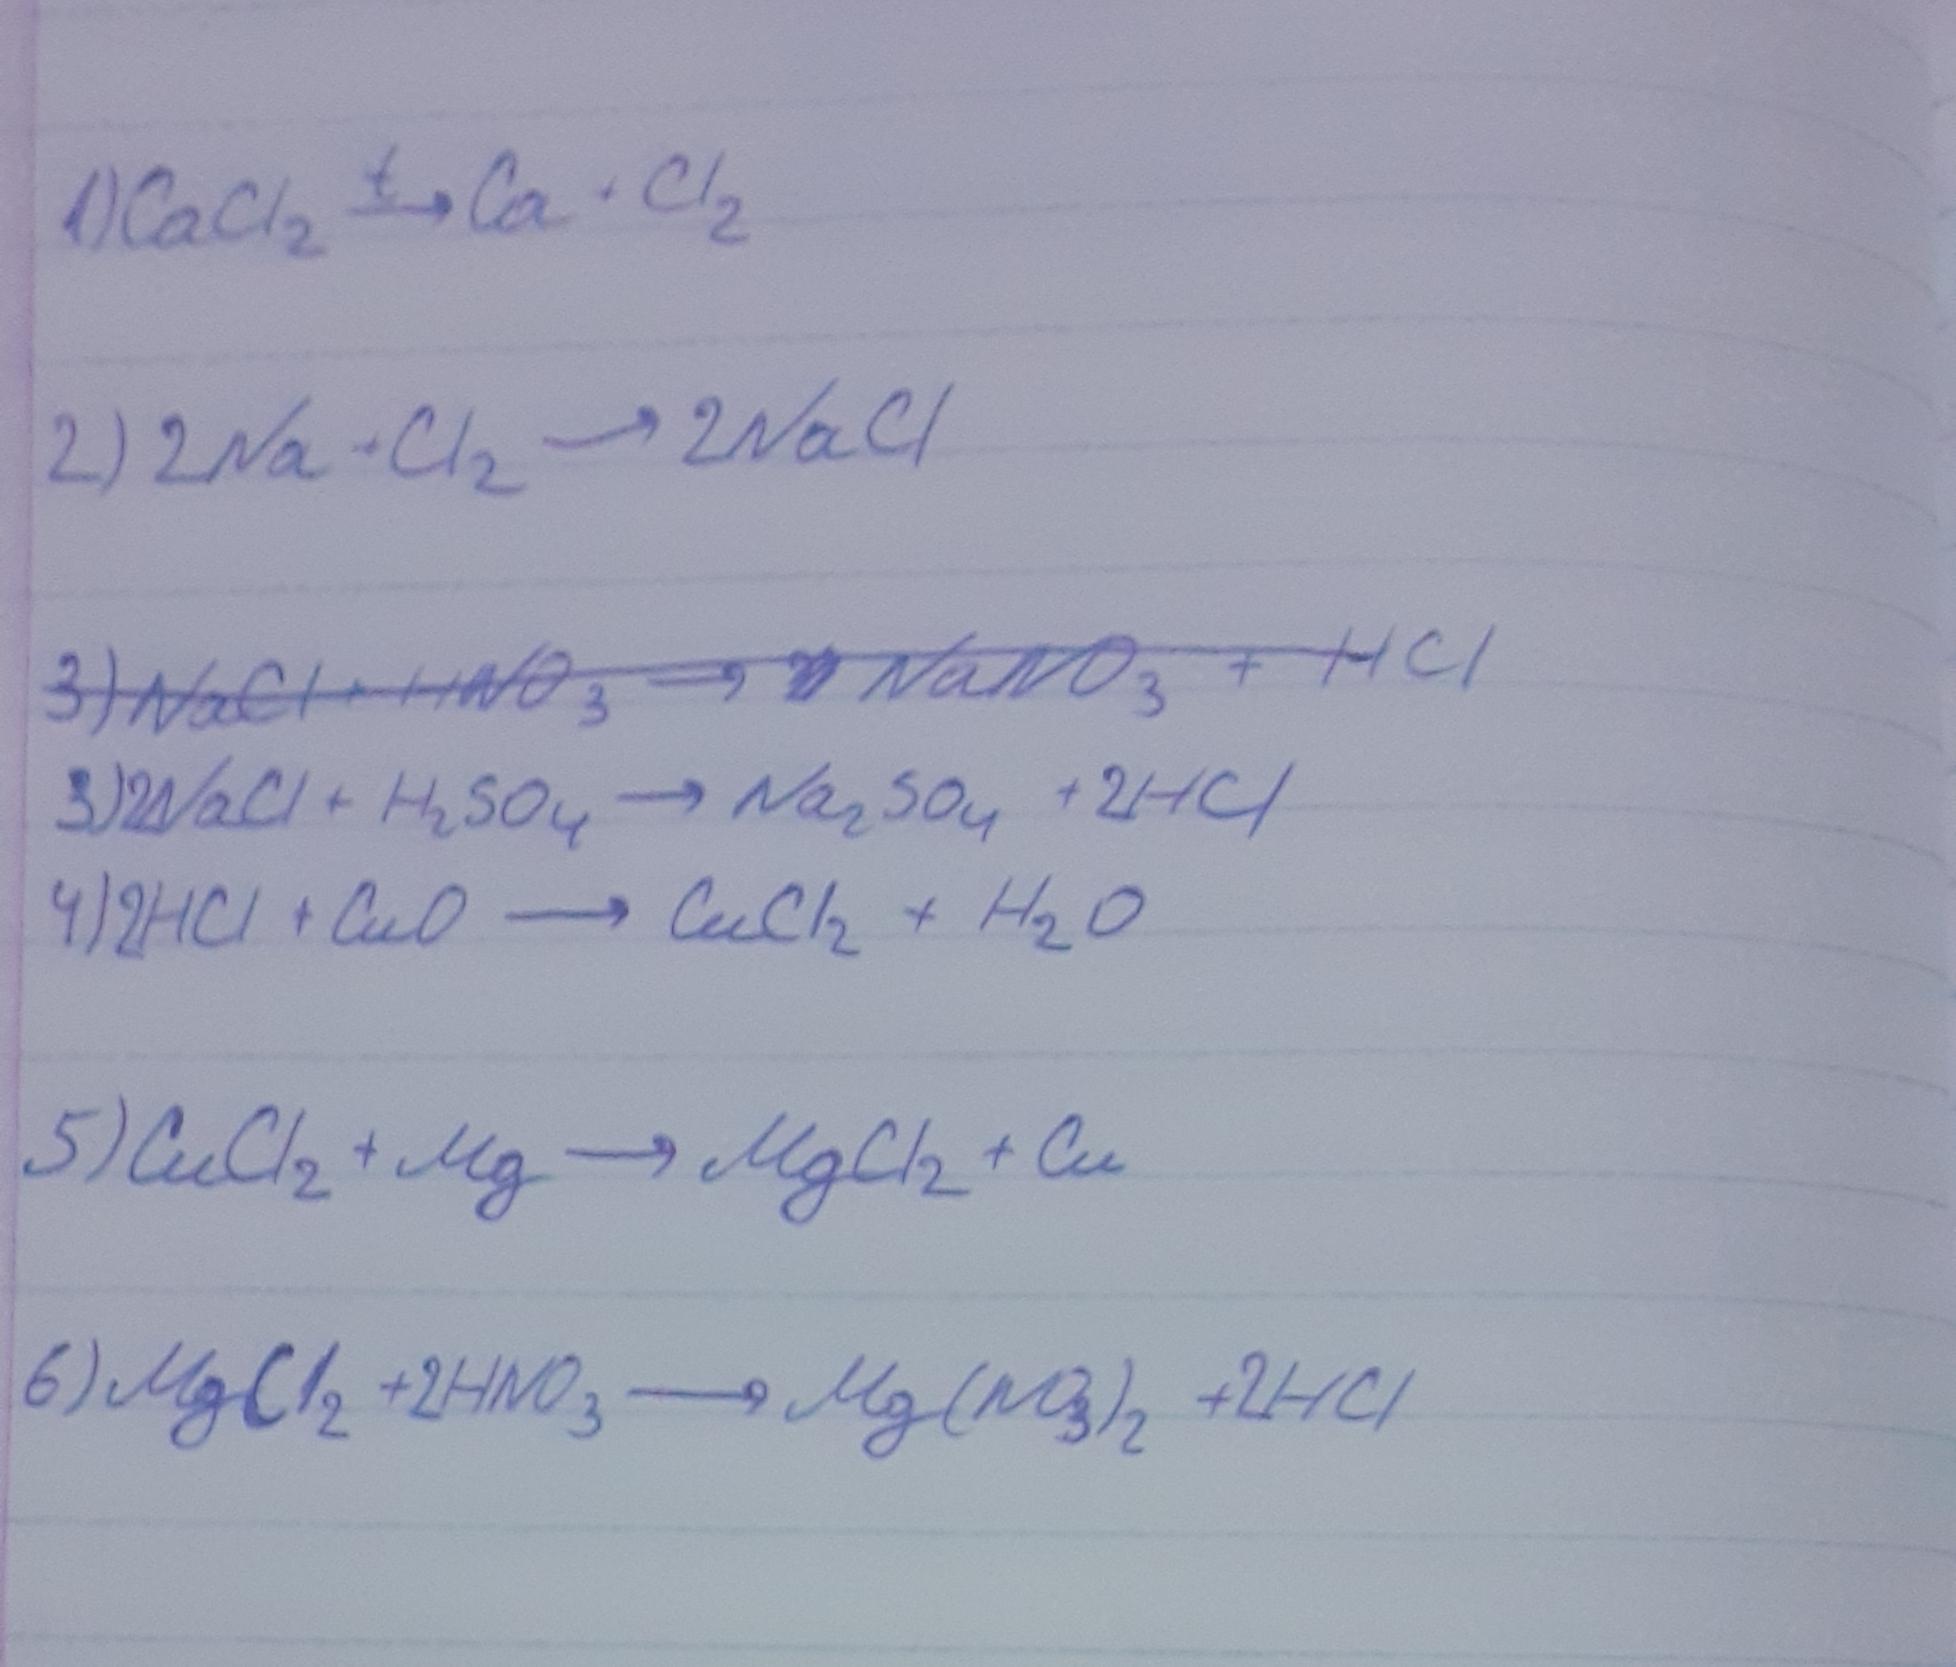 1) CaCl₂ t→ Ca + Cl₂
2) 2Na + Cl₂ → 2NaCl
3) NaCl + HNO₃ → NaNO₃ + HCl
3) 2NaCl + H₂SO₄ → Na₂SO₄ + 2HCl
4) 2HCl + CuO → CuCl₂ + H₂O
5) CuCl₂ + Mg → MgCl₂ + Cu
6) MgCl₂ + 2HNO₃ → Mg(NO₃)₂ + 2HCl